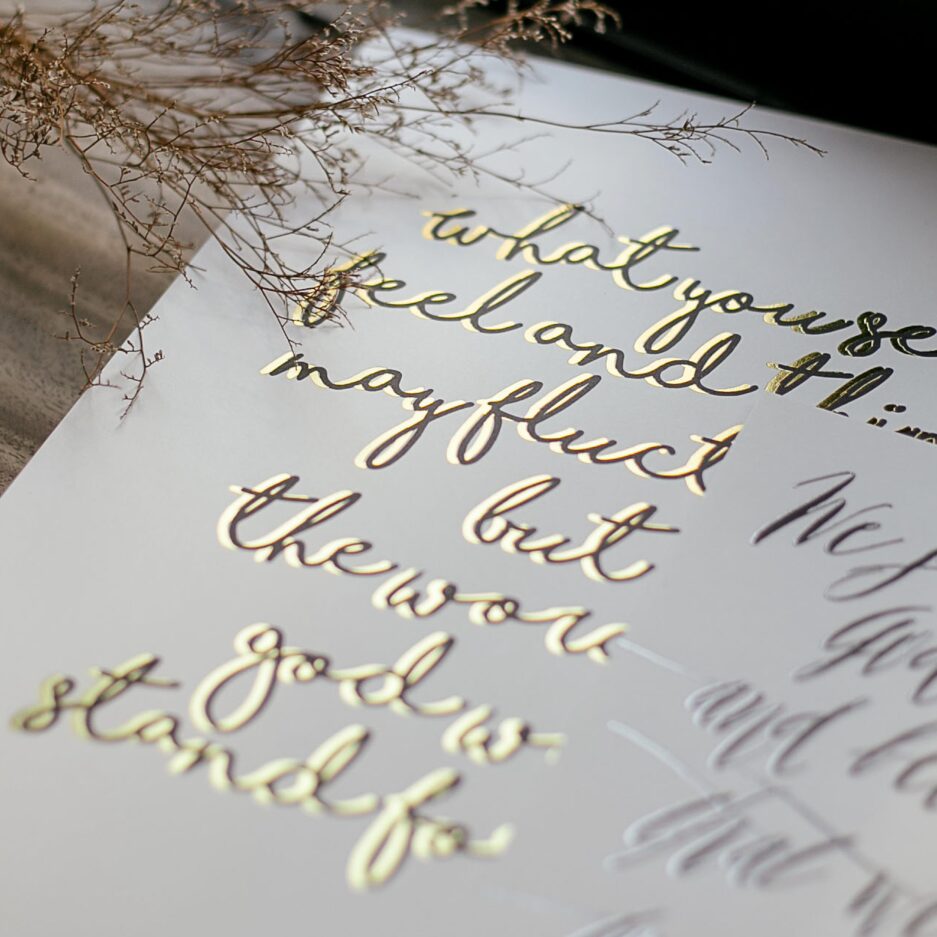 what you se
feel and thin
may fluct
but
the wor
god w
stand fo
We
and
that we